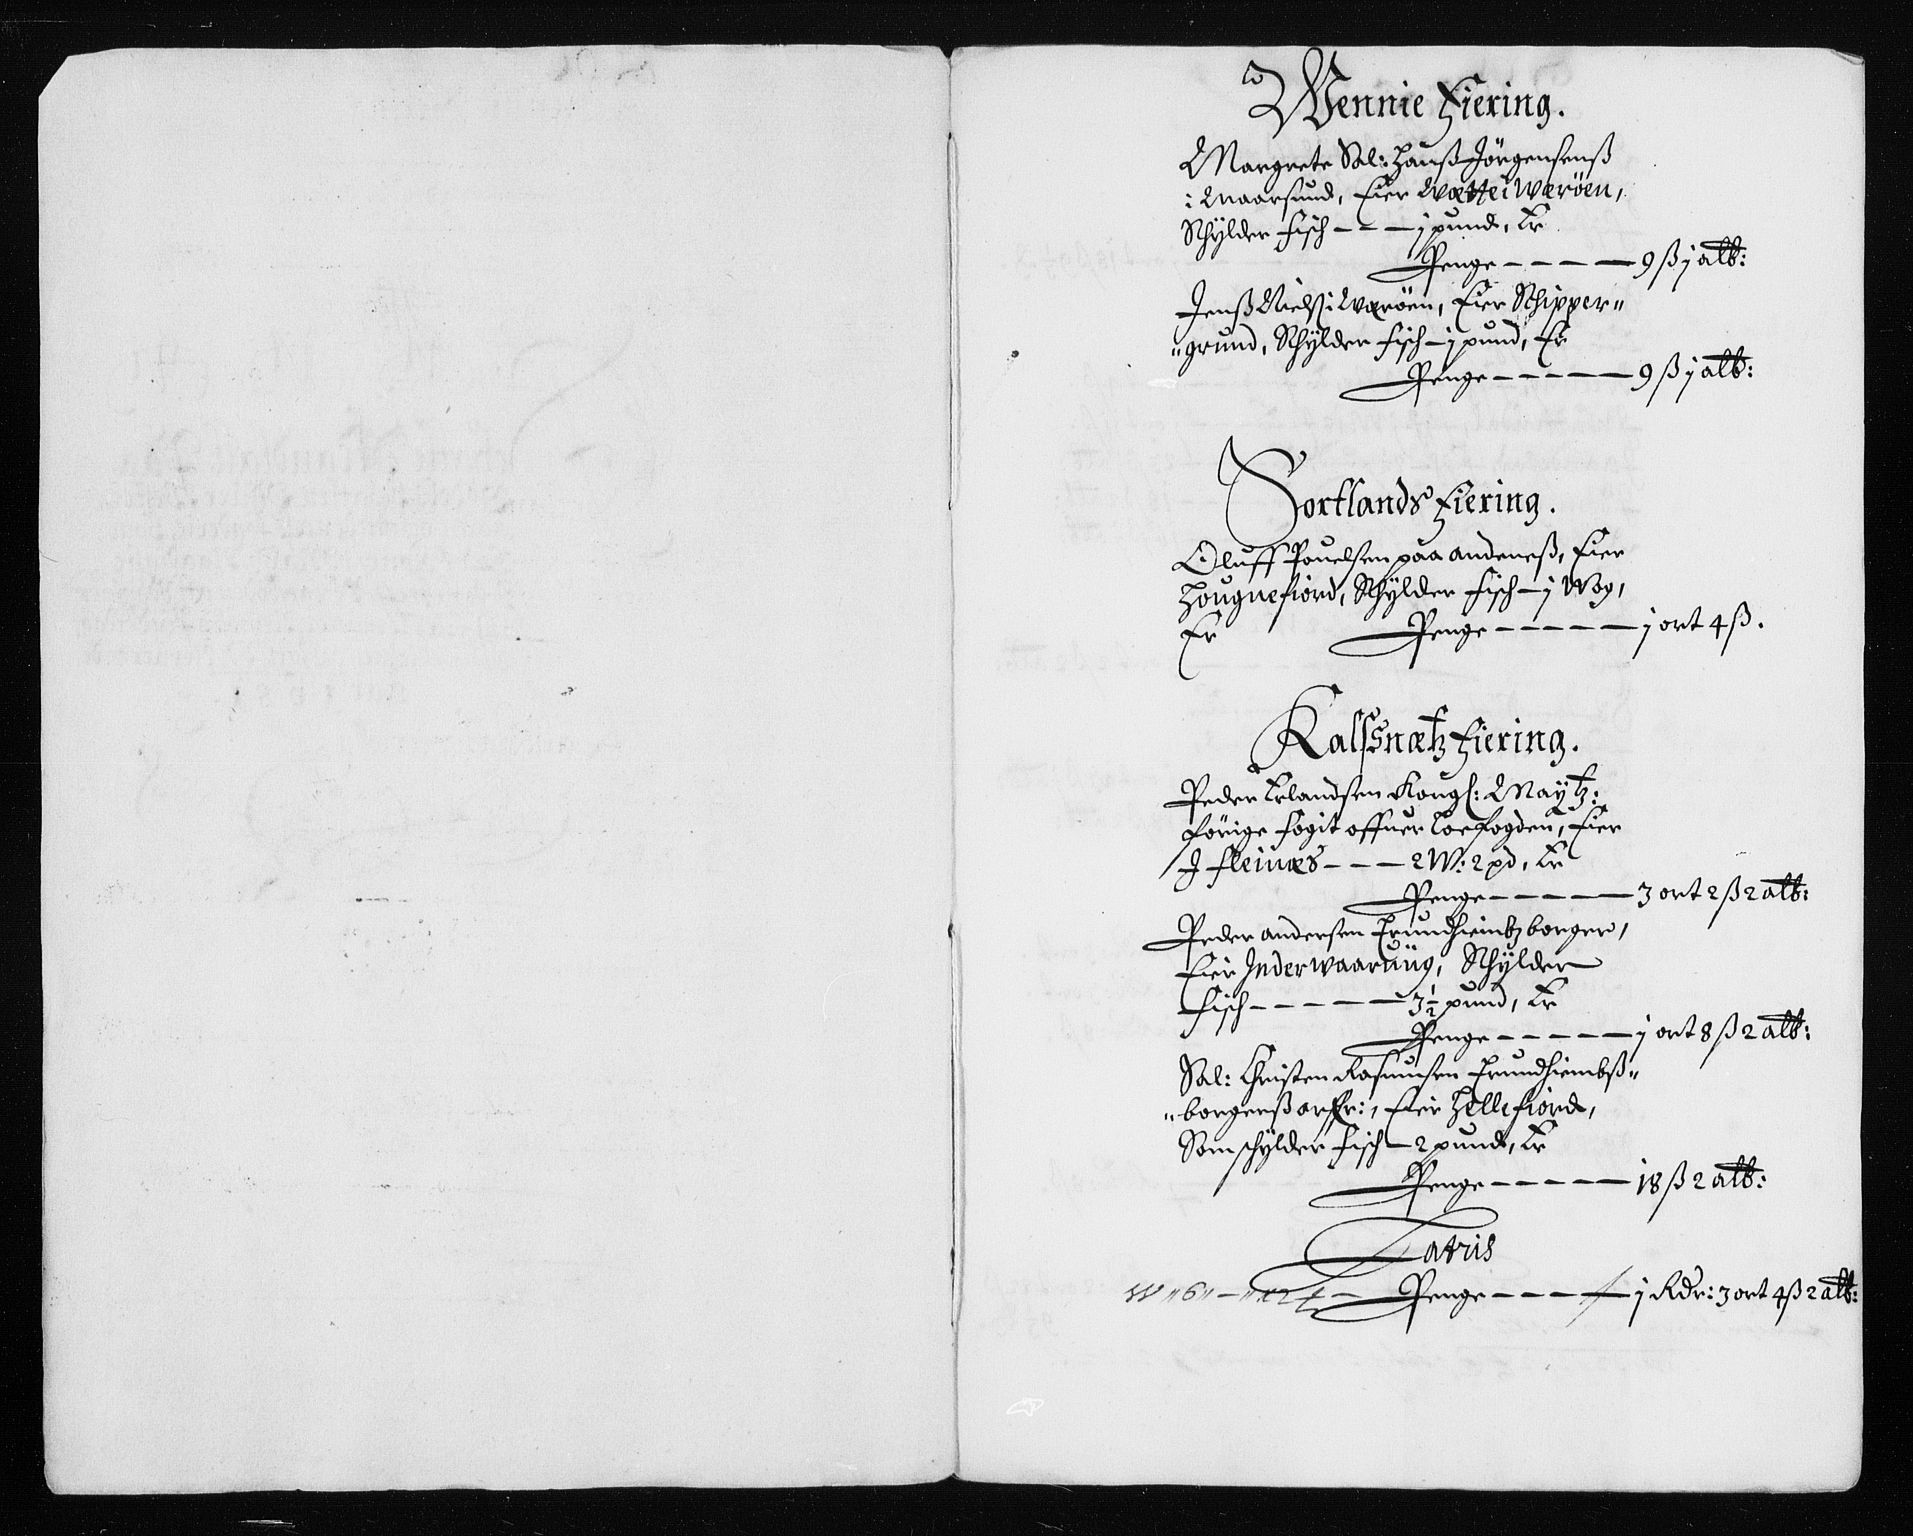 Wennie Fiering.
Margrete Sal: Hanß Jörgensenß
i Maarsund, Eier Wætte i Weröen,
Schÿlder Fisch – – – j pund, Er
Penge – – – – – 9 ß j alb:
Jenß Nielß: i Weröen, Eier Schipper"
"grund, Schÿlder Fisch – j pund, Er
Penge – – – – – 9 ß j alb:
Sortlands Fiering.
Oluff Pouelsen paa andeneß, Eier
Hougnefiord, Schÿlder Fisch – j Wog,
Er Penge – – – – – j ort 4 ß.
Kalssnætz Fiering.
Peder Erlandsen Kongl: Maÿtz:
forige Fogit offuer Loefogden, Eier
J Fleinæs – – – 2 W: 2 pd, Er
Penge – – – – – 3 ort 2 ß 2 alb:
Peder andersen Trundhiembs borger,
Eier Inderwaarüng, Schÿlder
Fisch – – – – – 3½ pund, Er
Penge – – – – – j ort 8 ß 2 alb:
Sal: Christen Rasmusen Trundhiembß"
"borgerß arffr:, Eier Hellefiord,
Som schÿlder Fisch – 2 pund, Er
Penge – – – – – 18 ß 2 alb:
Latris
W "6" – Penge – – – – j Rdr: 3 ort 4 ß 2 alb: